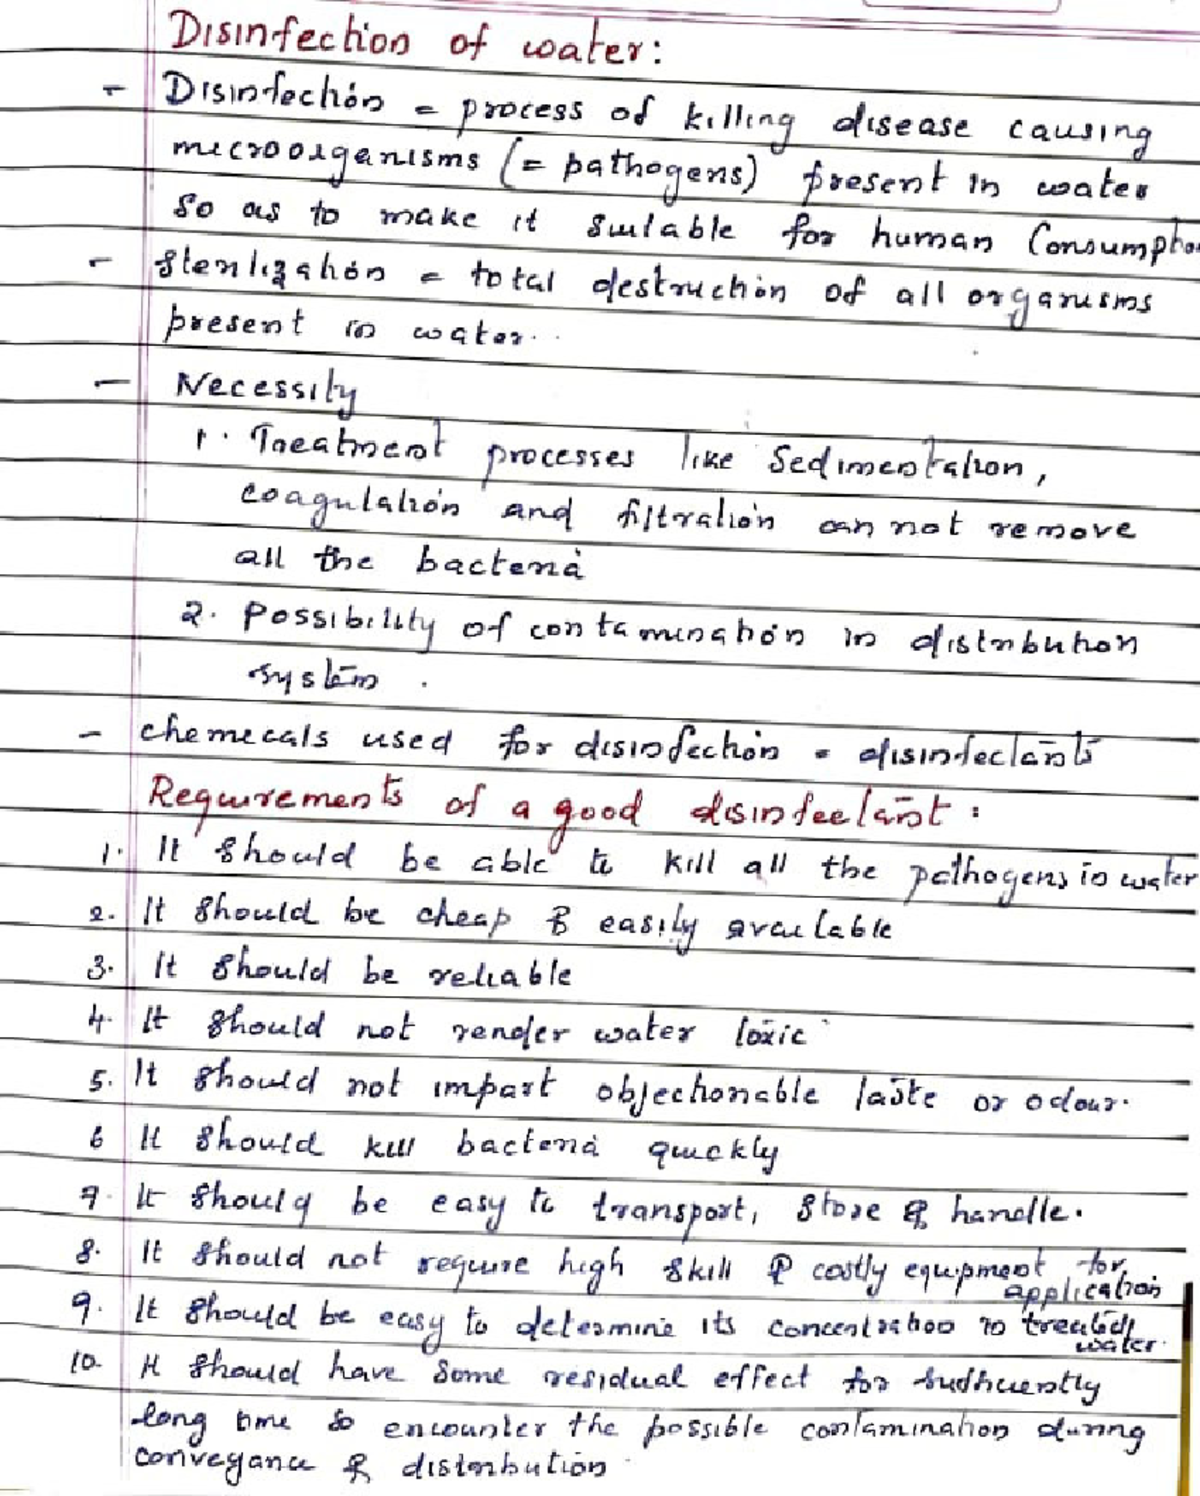 Disinfection of water:
- Disinfection = process of killing disease causing
microorganisms (= pathogens) present in water
so as to make it suitable for human Consumption
- sterilization = total destruction of all organisms
present in water..
- Necessity
1. Treatment processes like Sedimentation,
coagulation and filtration can not remove
all the bacteria
2. Possibility of contamination in distribution
system.
- chemicals used for disinfection = disinfectants
Requirements of a good disinfectant:
1. It should be able to kill all the pathogens in water
2. It should be cheap & easily available
3. It should be reliable
4. It should not render water toxic
5. It should not impart objectionable taste or odour.
6 It should kill bacteria quickly
7. It should be easy to transport, store & handle.
8. It should not require high skill & costly equipment for
application
9. It should be easy to determine its concentration in treated
water.
10. It should have some residual effect for sufficiently
long time to encounter the possible contamination during
conveyance & distribution